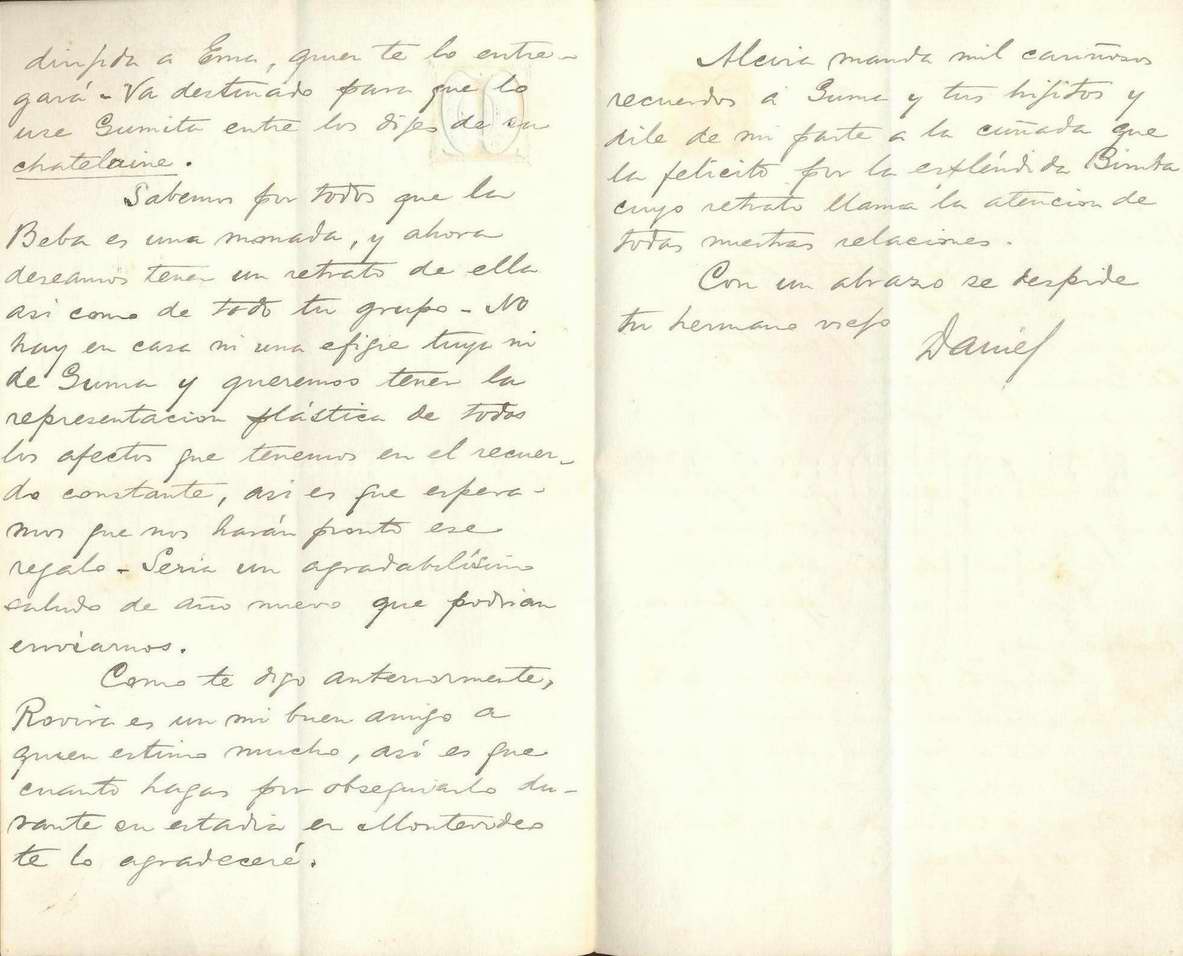 dirijida a Ema, quien te lo entre-
gará - Va destinado para que lo
use Gumita entre los dijes de su
chatelaine.
Sabemos por todos que la
Beba es una monada, y ahora
deseamos tener un retrato de ella
asi como de todo tu grupo - No
hay en casa ni una efigie tuya ni
de Guma y queremos tener la
representacion plástica de todos
los afectos que tenemos en el recuer-
do constante, asi es que espera-
mos que nos harán pronto ese
regalo - Seria un agradabilísimo
saludo de año nuevo que podrian
enviarnos.
Como te digo anteriormente,
Rovira es un mi buen amigo a
quien estimo mucho, así es que
cuanto hagas por obsequiarlo du-
rante su estadia en Montevideo
te lo agradeceré.
Alcira manda mil cariñosos
recuerdos á Guma y tus hijitos y
dile de mi parte a la cuñada que
la felicito por la expléndida
cuyo retrato llama la atencion de
todas nuestras relaciones.
Con un abrazo se despide
tu hermano viejo
Daniel